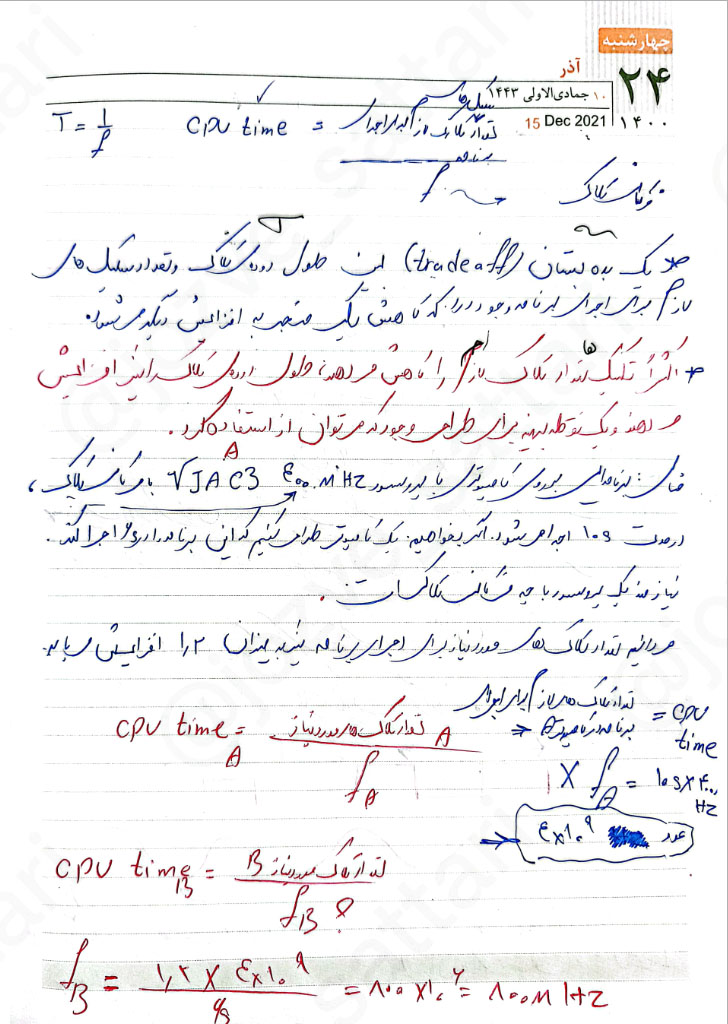 چهارشنبه
آذر
۲۴
۱۰ جمادی‌الاولی ۱۴۴۳
15 Dec 2021 ۱۴۰۰
T = 1/f CPU time = تعداد کلاک لازم برای اجرای برنامه / f
فرکانس کلاک
* یک بده بستان (tradeoff) بین طول دوره‌ی کلاک و تعداد سیکل های
لازم برای اجرای برنامه وجود دارد که کاهش یک منجر به افزایش دیگر می شود.
* اکثراً تکنیک ها تعداد کلاک لازم را کاهش می دهند، طول دوره‌ی کلاک را نیز افزایش
می دهند و یک نقطه بهینه برای طراحی وجود که می توان از استفاده کرد.
مثال: برنامه‌ای بر روی کامپیوتری A با پروسسور JAC3 ۴۰۰ MHz با فرکانس کلاک،
در مدت 10s اجرا می شود. اگر بخواهیم یک کامپیوتر طراحی کنیم که این برنامه را در ۶s اجرا کند.
نیازمند یک پروسسور با چه فرکانس کلاک است.
می دانیم تعداد کلاک های مورد نیاز برای اجرای برنامه نیز به میزان ۱٫۲ افزایش می یابد.
CPU time = تعداد کلاک های لازم برای اجرای
برنامه در کامپیوتر A
CPU time A = تعداد کلاک های مورد نیاز A / fA
X fA = 10s x ۴۰۰ Hz
عدد ۴x۱۰^۹
CPU time B = تعداد کلاک مورد نیاز B / fB ?
fB = ۱٫۲ X ۴x۱۰^۹ / ۶s = ۸۰۰ x۱۰^۶ = ۸۰۰ MHz